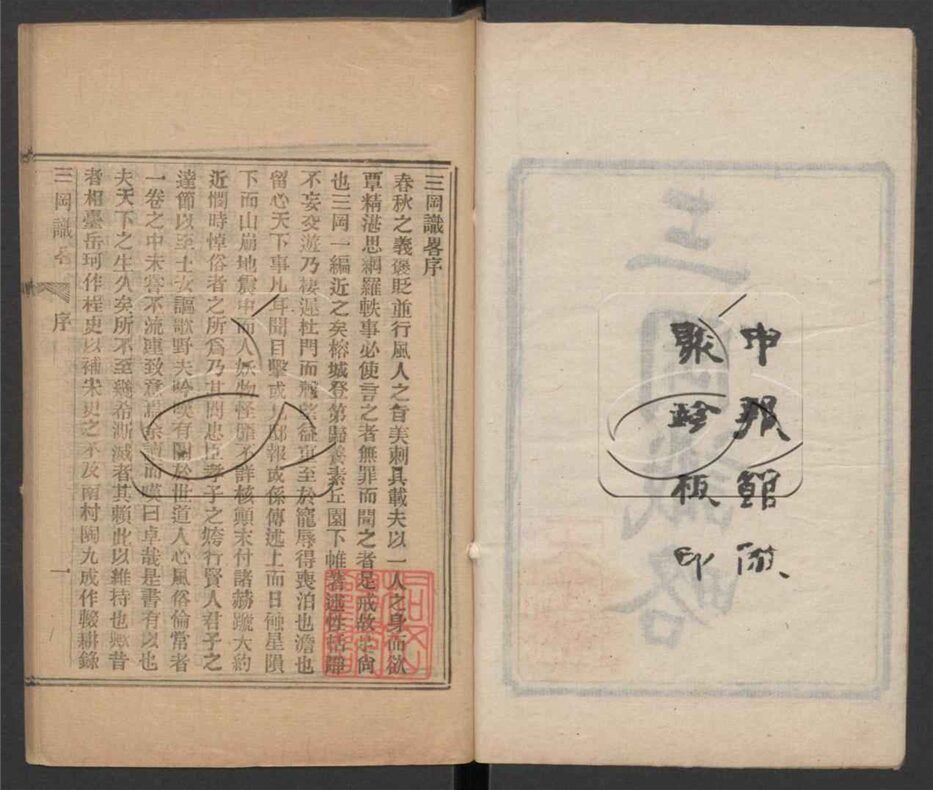 申報館倣
聚珍板印
三岡識略
三岡識畧序
春秋之義褒貶並行風人之旨美刺具載夫以一人之身而欲
覃精湛思網羅軼事必使言之者無罪而聞之者足戒故尚
也三岡一編近之矣榕城登第歸養素丘園下帷著述性恬靜
不妄交遊乃棲遲杜門而聲望益重至於寵辱得喪泊也澹也
留心天下事凡耳聞目擊或邸報或係傳述上而日蝕星隕
下而山崩地震中而人妖物怪靡不詳核顛末付諸赫蹏大約
近憫時悼俗者之所爲乃其間忠臣孝子之行賢人君子之
達節以至士女謳歌野夫吟咏有關於世道人心風俗倫常者
一卷之中未嘗不流連致意焉余讀而嘆曰卓哉是書有以也
夫天下之生久矣所不至幾希澌滅者其賴此以維持也歟昔
者相臺岳珂作桯史以補宋史之不及南村陶九成作輟耕錄
三岡識畧 序 一